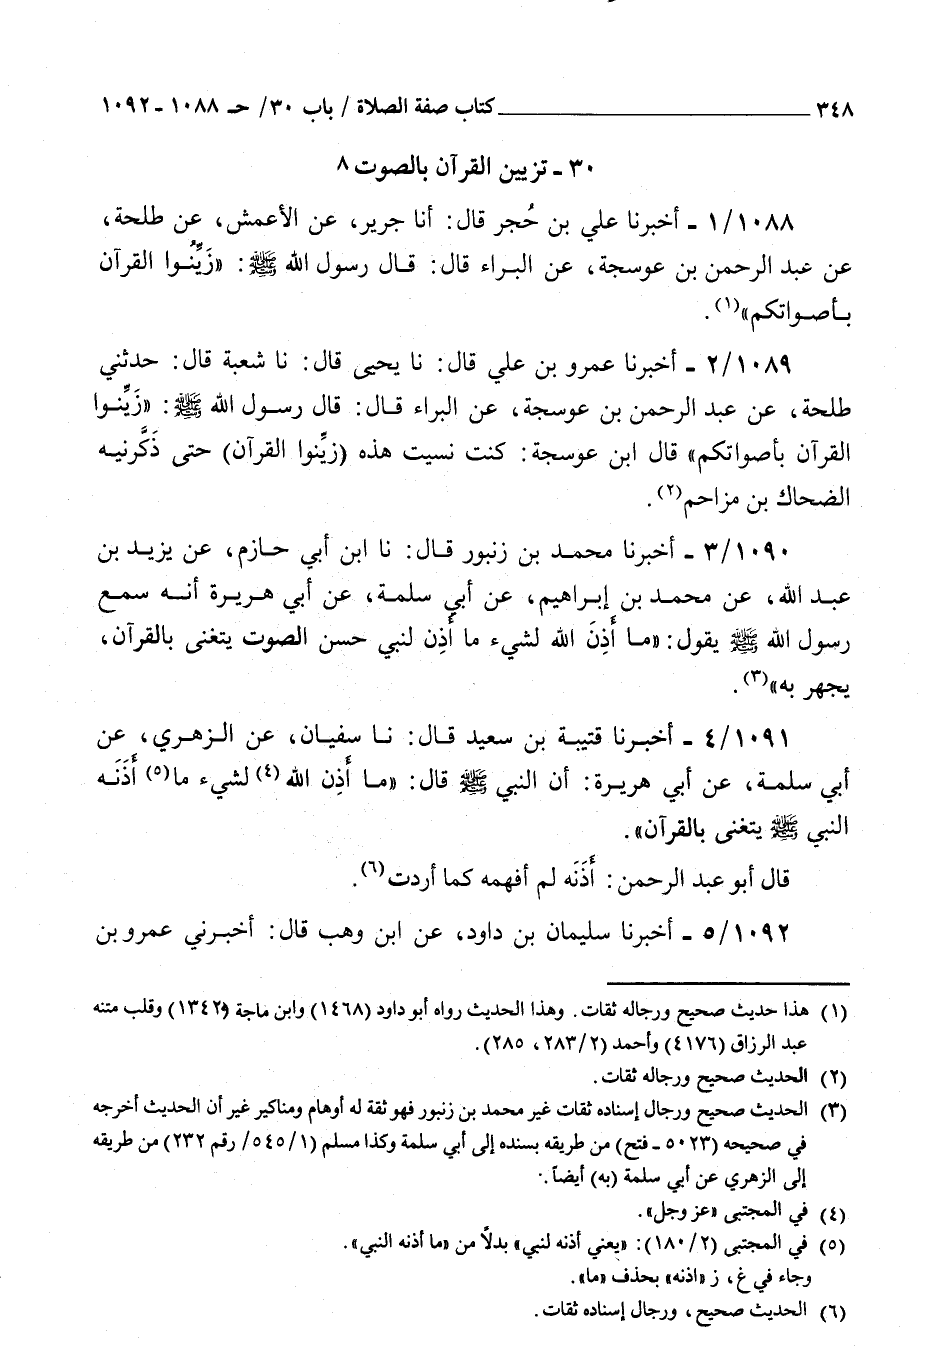 ٣٤٨ ــــــــــــــــــــ كتاب صفة الصلاة / باب ٣٠/ حـ ١٠٨٨ - ١٠٩٢
٣٠ - تزيين القرآن بالصوت ٨
١/١٠٨٨ - أخبرنا علي بن حُجر قال: أنا جرير، عن الأعمش، عن طلحة،
عن عبد الرحمن بن عوسجة، عن البراء قال: قال رسول الله ﷺ: «زَيِّنُوا القرآن
بأصواتكم»(١).
٢/١٠٨٩ - أخبرنا عمرو بن علي قال: نا يحيى قال: نا شعبة قال: حدثني
طلحة، عن عبد الرحمن بن عوسجة، عن البراء قال: قال رسول الله ﷺ: «زَيِّنوا
القرآن بأصواتكم» قال ابن عوسجة: كنت نسيت هذه (زيِّنوا القرآن) حتى ذَكَّرنيه
الضحاك بن مزاحم(٢).
٣/١٠٩٠ - أخبرنا محمد بن زنبور قال: نا ابن أبي حازم، عن يزيد بن
عبد الله، عن محمد بن إبراهيم، عن أبي سلمة، عن أبي هريرة أنه سمع
رسول الله ﷺ يقول: «ما أَذِنَ الله لشيء ما أَذِن لنبي حسن الصوت يتغنى بالقرآن،
يجهر به»(٣).
٤/١٠٩١ - أخبرنا قتيبة بن سعيد قال: نا سفيان، عن الزهري، عن
أبي سلمة، عن أبي هريرة: أن النبي ﷺ قال: «ما أَذِن الله(٤) لشيء ما(٥) أَذَنَه
النبي ﷺ يتغنى بالقرآن».
قال أبو عبد الرحمن: أَذَنَه لم أفهمه كما أردت(٦).
٥/١٠٩٢ - أخبرنا سليمان بن داود، عن ابن وهب قال: أخبرني عمرو بن
(١) هذا حديث صحيح ورجاله ثقات. وهذا الحديث رواه أبو داود (١٤٦٨) وابن ماجة (١٣٤٢) وقلب متنه
عبد الرزاق (٤١٧٦) وأحمد (٢/٢٨٣، ٢٨٥).
(٢) الحديث صحيح ورجاله ثقات.
(٣) الحديث صحيح ورجال إسناده ثقات غير محمد بن زنبور فهو ثقة له أوهام ومناكير غير أن الحديث أخرجه
في صحيحه (٥٠٢٣ - فتح) من طريقه بسنده إلى أبي سلمة وكذا مسلم (١/٥٤٥/ رقم ٢٣٢) من طريقه
إلى الزهري عن أبي سلمة (به) أيضاً.
(٤) في المجتبى «عز وجل».
(٥) في المجتبى (٢/١٨٠): «يعني أذنه لنبي» بدلاً من «ما أذنه النبي».
وجاء في غ، ز «اذنه» بحذف «ما».
(٦) الحديث صحيح، ورجال إسناده ثقات.